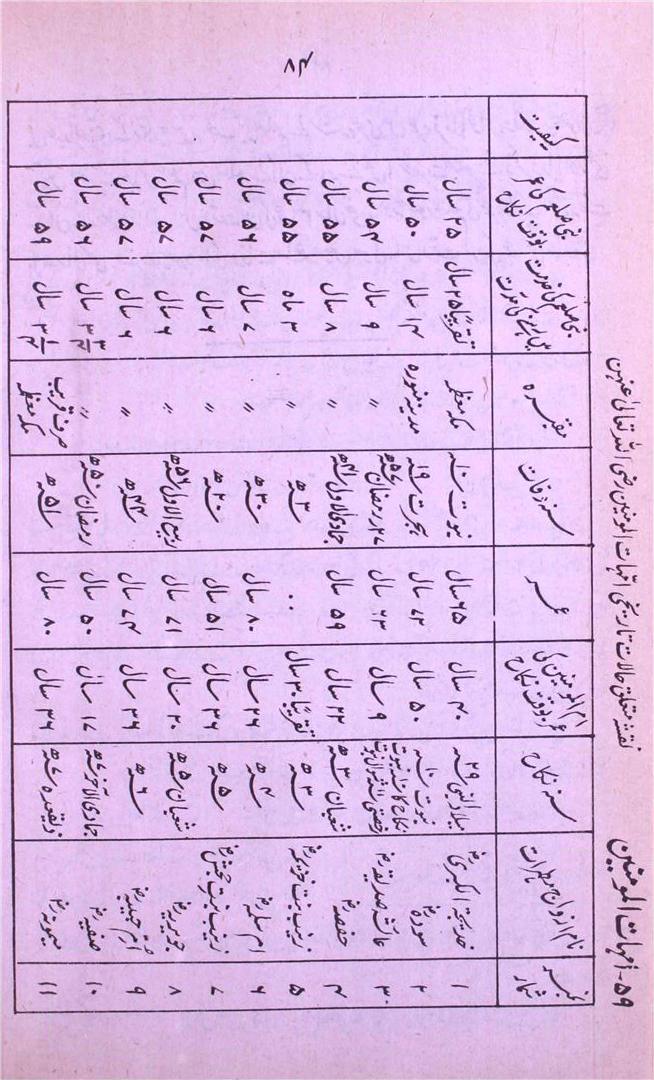 ۸۴
۵۹۔ امہات المومنین
نقشہ متعلق حالات تاریخی امہات المومنین رضی اللہ تعالیٰ عنہن
نمبر شمار | نام ازواج مطہرات | سنہ نکاح | ام المومنین کی عمر بوقت نکاح | عمر | سنہ وفات | مقبرہ | نبی صلعم کی خدمت میں رہنے کی مدت | نبی صلعم کی عمر بوقت نکاح | کیفیت
۱ | خدیجۃ الکبریٰ رض | ۲۹ میلاد النبی | ۴۰ سال | ۶۵ سال | نبوت ۱۰ | مکہ معظمہ | تقریباً ۲۵ سال | ۲۵ سال
۲ | سودہ رض | نبوت ۱۰ | ۵۰ سال | ۷۲ سال | ہجرت ۱۹ | مدینہ منورہ | ۱۴ سال | ۵۰ سال
۳ | عائشہ صدیقہ رض | نکاح نبوت رخصتی شوال | ۹ سال | ۶۳ سال | ۱۷ رمضان ۵۷ھ | 〃 | ۹ سال | ۵۴ سال
۴ | حفصہ رض | شعبان ۳ھ | ۲۲ سال | ۵۹ سال | جمادی الاول ۴۱ھ | 〃 | ۸ سال | ۵۵ سال
۵ | زینب بنت خزیمہ رض | ۳ھ | تقریباً ۳۰ سال | ۰۰ | ۳ھ | 〃 | ۳ ماہ | ۵۵ سال
۶ | ام سلمہ رض | ۴ھ | ۲۶ سال | ۸۰ سال | ۶۰ھ | 〃 | ۷ سال | ۵۶ سال
۷ | زینب بنت جحش رض | ۵ھ | ۳۶ سال | ۵۱ سال | ۲۰ھ | 〃 | ۶ سال | ۵۷ سال
۸ | جویریہ رض | شعبان ۵ھ | ۲۰ سال | ۷۱ سال | ربیع الاول ۵۶ھ | 〃 | ۶ سال | ۵۷ سال
۹ | ام حبیبہ رض | ۶ھ | ۳۶ سال | ۷۴ سال | ۴۴ھ | 〃 | ۶ سال | ۵۷ سال
۱۰ | صفیہ رض | جمادی الآخر ۷ھ | ۱۷ سال | ۵۰ سال | رمضان ۵۰ھ | 〃 | ۳ ۳/۴ سال | ۵۶ سال
۱۱ | میمونہ رض | ذیقعدہ ۷ھ | ۳۶ سال | ۸۰ سال | ۵۱ھ | سرف قریب مکہ معظمہ | ۳ ۱/۴ سال | ۵۹ سال